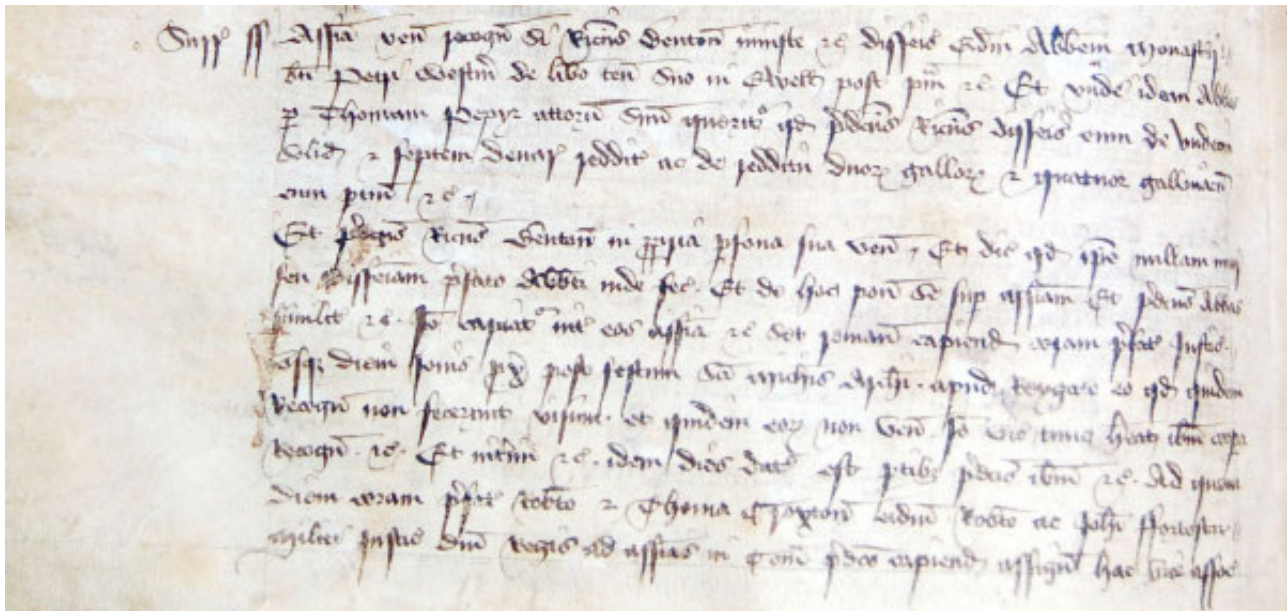 Surr ss Assīa ven̄ recogn̄ si Ric̄us Benton̄ iniuste ⁊c̄ disseis̄ eid̄m Abb̄em Monast̄ij
b̄ti Petri Westm̄ de lib̄o ten̄ suo in Ewell post p̄im̄ ⁊c̄ Et vnde idem Abbas
p Thomam Pepyr attorn̄ suū querit̄ qd̄ p̄dc̄us Ric̄us disseis̄ eum de vndecī
solid̄ ⁊ septem denar̄ reddit̄ ac de redditū duoꝝ galloꝝ ⁊ quatuor gallinaꝝ
cum ptin̄ ⁊c̄
Et p̄dc̄us Ric̄us Benton̄ in ppria psona sua ven̄ Et dic̄ qd̄ ip̄e nullam iniur̄
seu disseis̄nam p̄fato Abb̄ti inde fec̄ Et de hoc pon̄ se sup assīam Et p̄dc̄us Abbas
simil̄it ⁊c̄ Iō capiat̄ int̄ eos assīa ⁊c̄ Set reman̄ capiend̄ coram p̄fat̄ Justic̄
vsqꝫ diem Jovis px̄ post festum Sc̄i Mich̄is Arch̄i apud Reygate eo qd̄ quidem
Recogn̄ non fecerunt visum et quidem eoꝝ non ven̄ Iō vic̄ tunc h̄eat ib̄m corpa
Recogn̄ ⁊c̄ Et int̄im ⁊c̄ idem dies dat̄ est ptibꝫ p̄dc̄is ib̄m ⁊c̄ Ad quem
diem coram p̄fat̄ Rob̄to ⁊ Thoma Croxton̄ eid̄m Rob̄to ac Joh̄i ffortescu
militi Justic̄ dn̄i Regis ad assīas in Com̄ p̄dc̄o capiend̄ assign̄ hac vice assoc̄